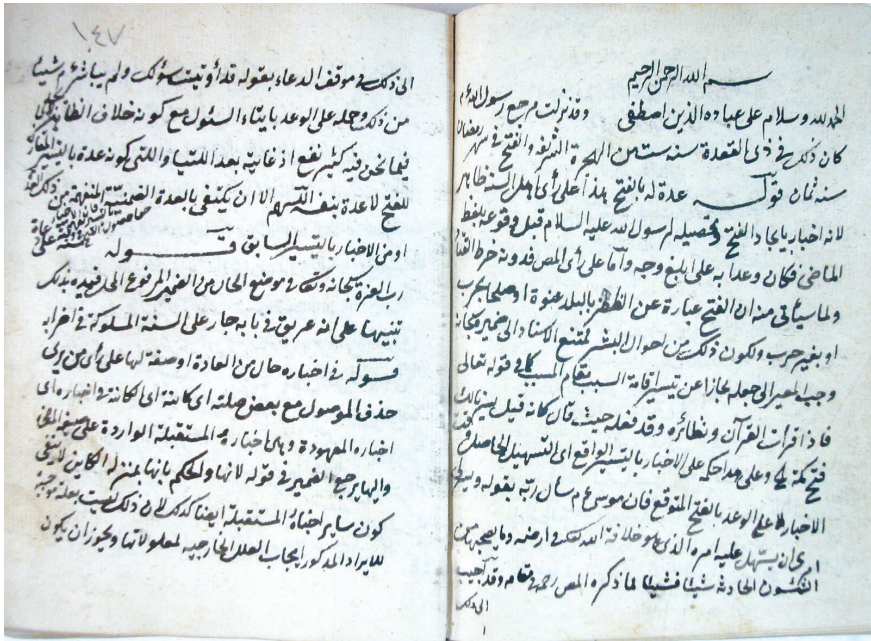 بسم الله الرحمن الرحيم
الحمد لله وسلام على عباده الذين اصطفى وقد نزلت مرجع رسول الله م
كان ذلك فى ذى القعدة سنة ست من الهجرة الشريفة والفتح فى شهر رمضان
سنة ثمان قوله عدة له بالفتح هذا على رأى اهل السنة ظاهر
لانه اخبار بايجاد الفتح وتحصيله لرسول الله عليه السلام قبل وقوعه بلفظ
الماضى فكان وعدا به على ابلغ وجه واما على رأى المص فدونه خرط القتاد
ولما سيأتى منه ان الفتح عبارة عن الظفر بالبلد عنوة او صلحا بحرب
او بغير حرب ولكون ذلك من احوال البشر يمتنع اسناده الى ضميره سبحانه
وجب المصير الى جعله مجازا عن تيسيره اقامة السبب مقام المسبب كما فى قوله تعالى
فاذا قرأت القرآن ونظائره وقد نقله حيث قال كانه قيل يسرنا لك
فتح مكة وعلى هذا حمله على الاخبار بالتيسير الواقع اى التسهيل الحاصل فى وقت
الاخبار لا على الوعد بالفتح المتوقع فان موسى م سأل ربه بقوله ويسر لى
امرى ان يسهل عليه امره الذى هو خلافة الله تعالى فى ارضه وما يصحبها من
الشئون الحادثة شيئا فشيئا لما ذكره المص رحمه فى مقامه وقد اجيب
الى ذلك
١٤٧
الى ذلك فى موقف الدعاء بقوله قد أوتيت سؤلك ولم يباشر م شيئا
من ذلك وحمله على الوعد بايتاء السئول مع كونه خلاف الظاهر
فيما نحن فيه كثير نفع اذ غايته بعد اللتيا واللتى كونه عدة بالتيسير المقارن
للفتح لا عدة بنفسه اللهم الا ان يكتفى بالعدة الضمنية المنفهمة من ذلك
او من الاخبار بالتيسير السابق قوله
رب العزة سبحانه وتعالى فى موضع الحال من الضمير المرفوع المحل فهيده بذلك
تنبيها على انه عريق فى بابه جار على السنة المسلوكة فى اخباره
قوله فى اخباره حال من العادة او صفة لها على رأى من يرى
حذف الموصول مع بعض صلته اى كائنة او الكائنة فى اخباره اى
اخباره المعهودة وهى اخباره المستقبلة الواردة على صيغة الماضى
واليها يرجع الضمير فى قوله لانها والحكم بانها بمنزلة الكاين لا يقتضى
كون ساير اخباره المستقبلة ايضا كذلك لان ذلك ليست بعلة موجبة
للايراد المذكور ايجاب العلل الخارجية لمعلولاتها ويجوز ان يكون